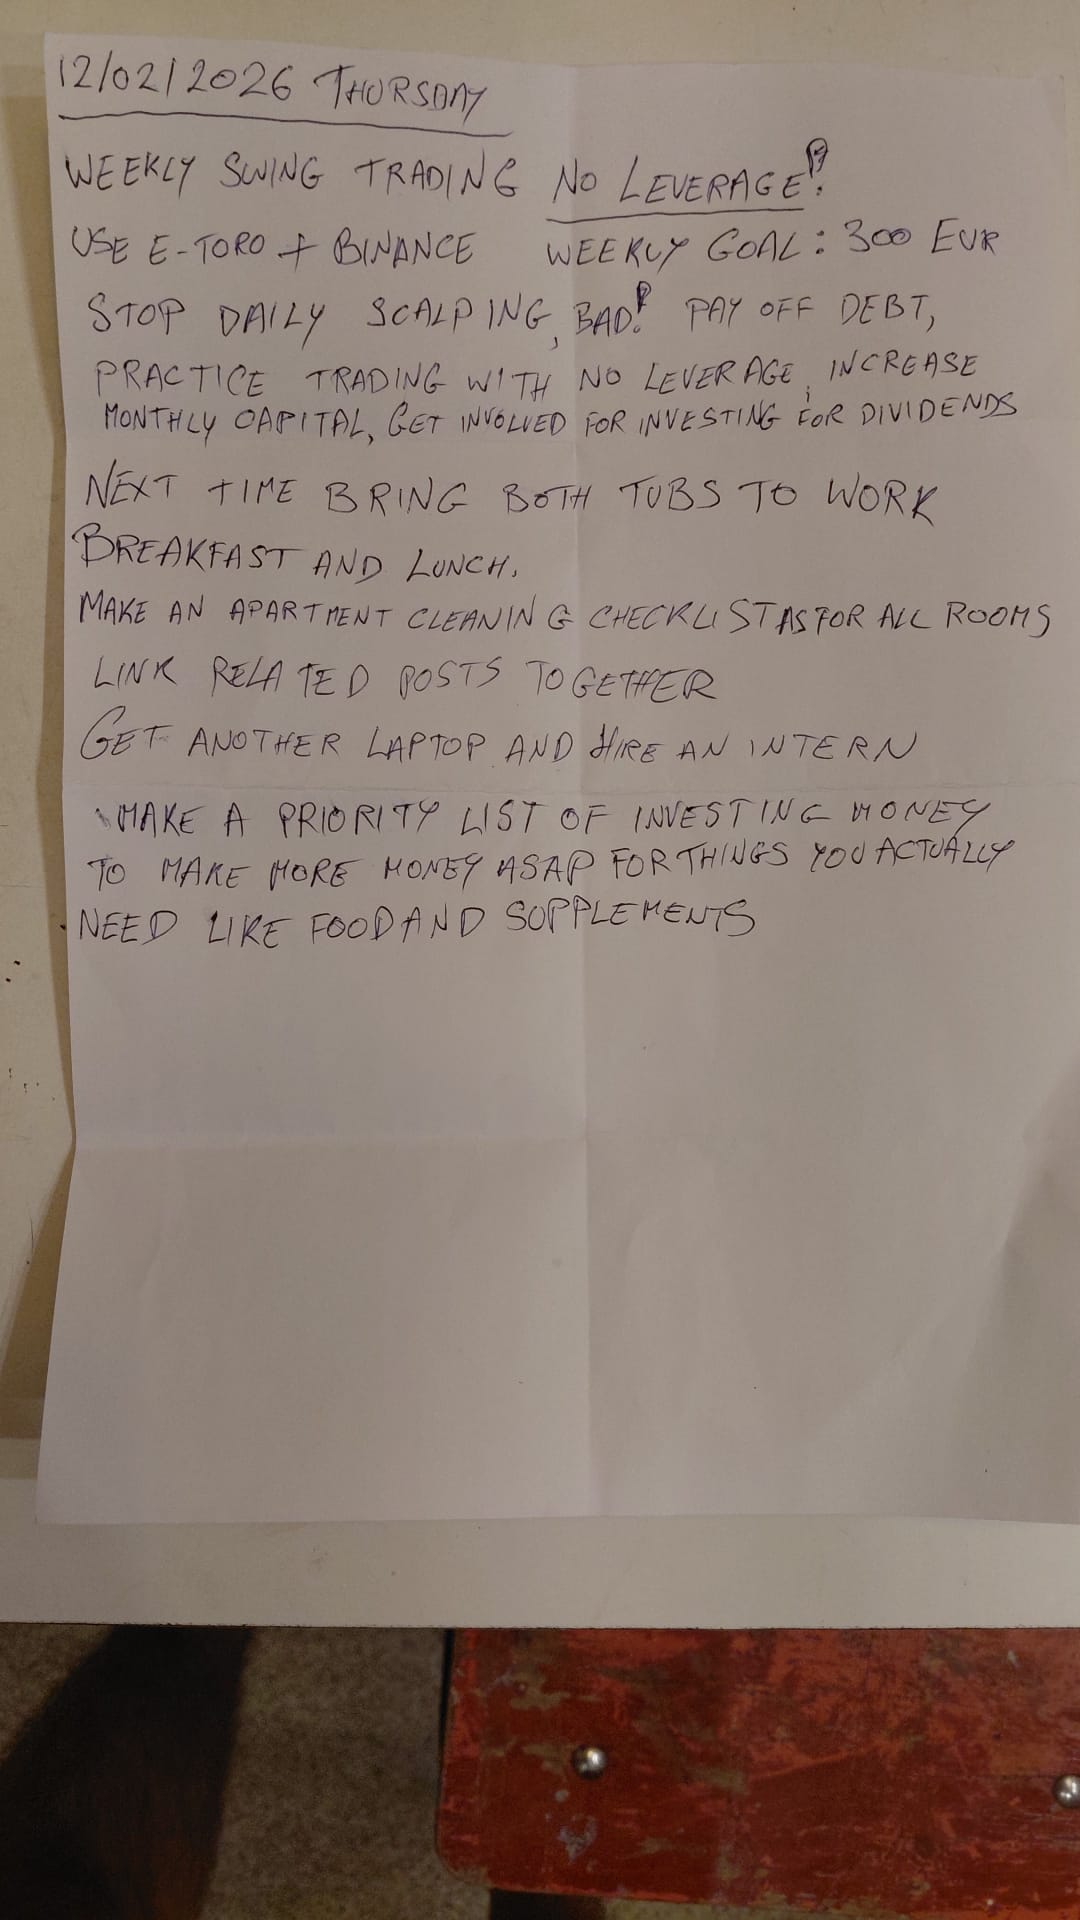 12/02/2026 THURSDAY
WEEKLY SWING TRADING NO LEVERAGE!
USE E-TORO + BINANCE WEEKLY GOAL: 300 EUR
STOP DAILY SCALPING, BAD! PAY OFF DEBT,
PRACTICE TRADING WITH NO LEVERAGE, INCREASE
MONTHLY CAPITAL, GET INVOLVED FOR INVESTING FOR DIVIDENDS
NEXT TIME BRING BOTH TUBS TO WORK
BREAKFAST AND LUNCH.
MAKE AN APARTMENT CLEANING CHECKLIST AS FOR ALL ROOMS
LINK RELATED POSTS TOGETHER
GET ANOTHER LAPTOP AND HIRE AN INTERN
MAKE A PRIORITY LIST OF INVESTING MONEY
TO MAKE MORE MONEY ASAP FOR THINGS YOU ACTUALLY
NEED LIKE FOOD AND SUPPLEMENTS